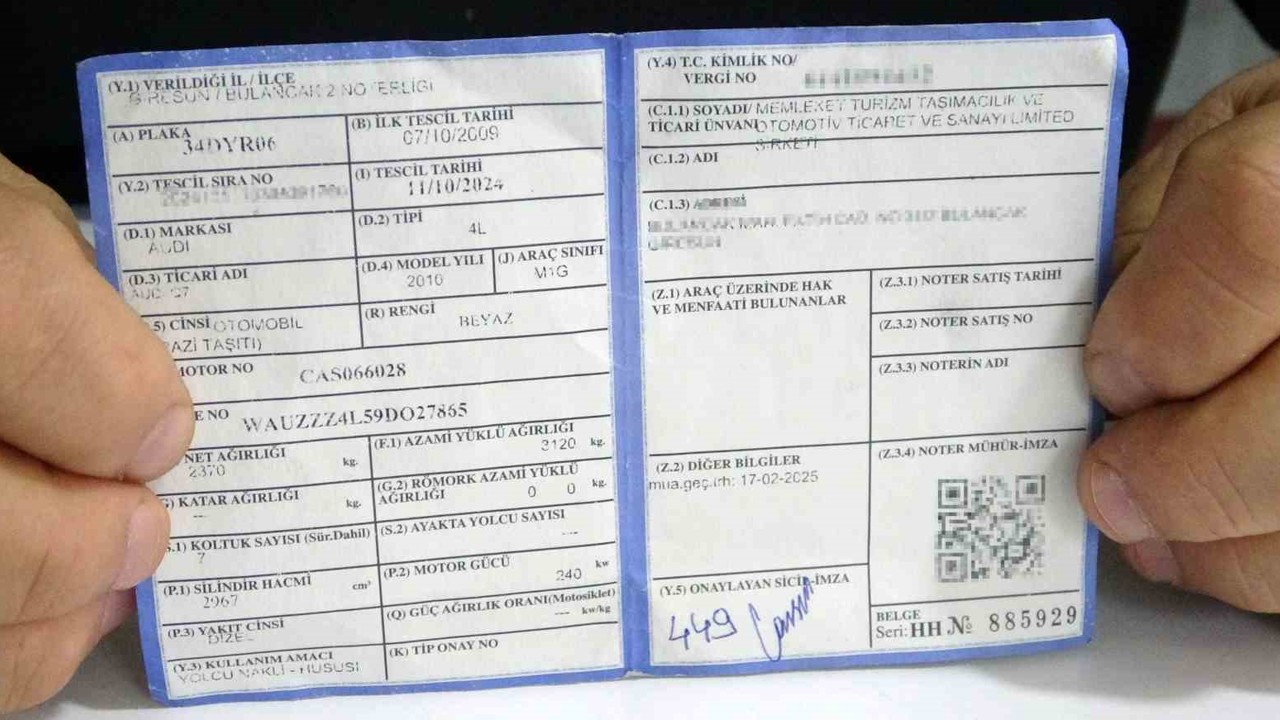 (Y.1) VERİLDİĞİ İL / İLÇE
GİRESUN / BULANCAK 2 NOTERLİĞİ
(A) PLAKA
34DYR06
(B) İLK TESCİL TARİHİ
07/10/2009
(Y.2) TESCİL SIRA NO
(I) TESCİL TARİHİ
11/10/2024
(D.1) MARKASI
AUDI
(D.2) TİPİ
4L
(D.3) TİCARİ ADI
(D.4) MODEL YILI
2010
(J) ARAÇ SINIFI
M1G
5) CİNSİ OTOMOBİL
AZİ TAŞITI)
(R) RENGİ
BEYAZ
MOTOR NO CAS066028
E NO WAUZZZ4L59DO27865
NET AĞIRLIĞI
2370 kg.
(F.1) AZAMİ YÜKLÜ AĞIRLIĞI
3120 kg.
) KATAR AĞIRLIĞI
--- kg.
(G.2) RÖMORK AZAMİ YÜKLÜ
AĞIRLIĞI 0 0 kg.
S.1) KOLTUK SAYISI (Sür.Dahil)
7
(S.2) AYAKTA YOLCU SAYISI
---
(P.1) SİLİNDİR HACMİ
2967 cm³
(P.2) MOTOR GÜCÜ
240 kw
(P.3) YAKIT CİNSİ
DİZEL
(Q) GÜÇ AĞIRLIK ORANI(Motosiklet)
--- kw/kg
(Y.3) KULLANIM AMACI
YOLCU NAKLİ - HUSUSİ
(K) TİP ONAY NO
(Y.4) T.C. KİMLİK NO/
VERGİ NO
(C.1.1) SOYADI/ MEMLEKET TURİZM TAŞIMACILIK VE
TİCARİ ÜNVANI OTOMOTİV TİCARET VE SANAYİ LİMİTED
ŞİRKETİ
(C.1.2) ADI
(C.1.3) ADRESİ
(Z.1) ARAÇ ÜZERİNDE HAK
VE MENFAATİ BULUNANLAR
(Z.3.1) NOTER SATIŞ TARİHİ
(Z.3.2) NOTER SATIŞ NO
(Z.3.3) NOTERİN ADI
(Z.2) DİĞER BİLGİLER
mua.geç.trh: 17-02-2025
(Z.3.4) NOTER MÜHÜR-İMZA
(Y.5) ONAYLAYAN SİCİL-İMZA
449
BELGE
Seri: HH № 885929